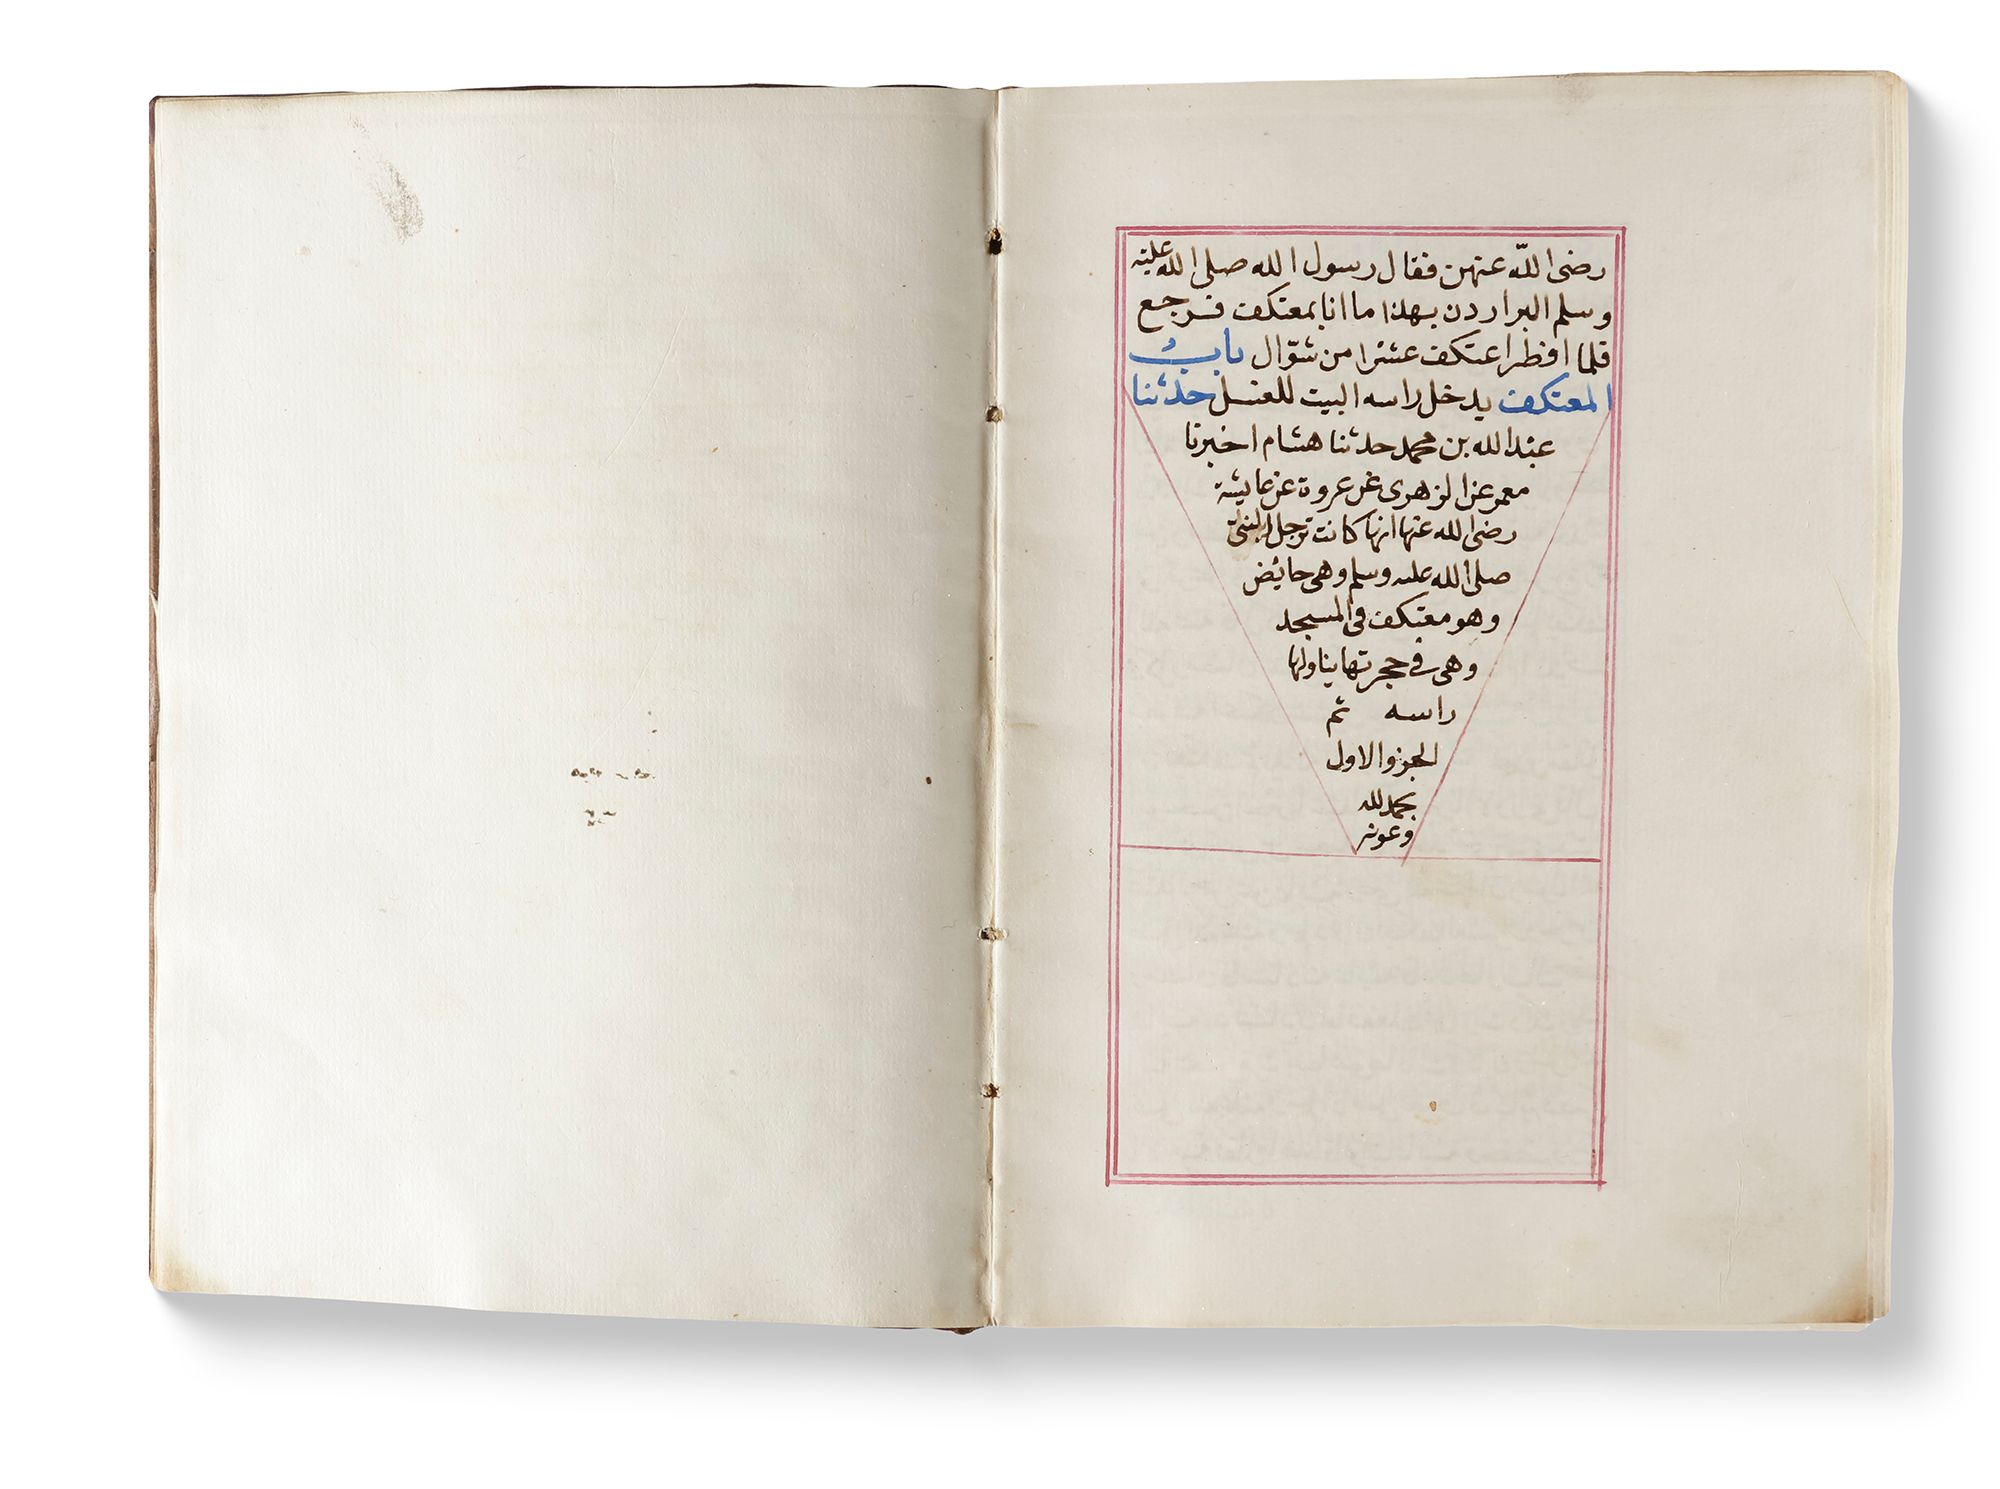 رضى الله عنهن فقال رسول الله صلى الله عليه
وسلم البر اردن بهذا ما انا بمعتكف فرجع
فلما افطر اعتكف عشرا من شوّال بابُ
المعتكف يدخل راسه البيت للغسل حدثنا
عبد الله بن محمد حدثنا هشام اخبرنا
معمر عن الزهرى عن عروة عن عايشة
رضى الله عنها انها كانت ترجل النبى
صلى الله عليه وسلم وهى حايض
وهو معتكف فى المسجد
وهى فى حجرتها يناولها
راسه تم
الجزو الاول
بحمد لله
وعونه